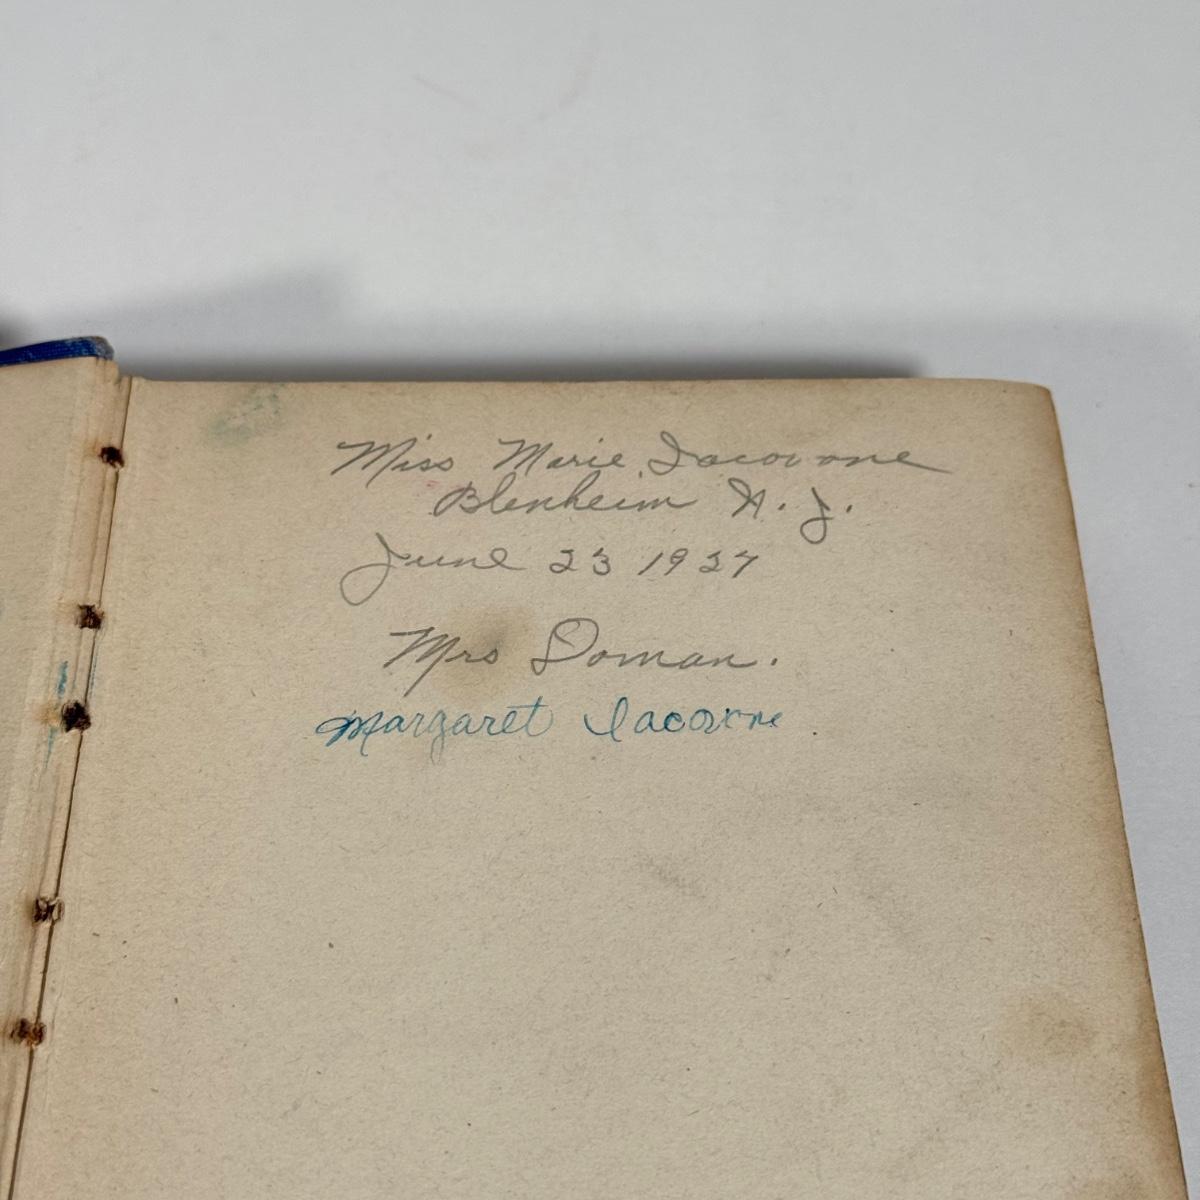 Miss Marie Iacovone
Blenheim N. J.
June 23 1927
Mrs Doman.
Margaret Iacovone